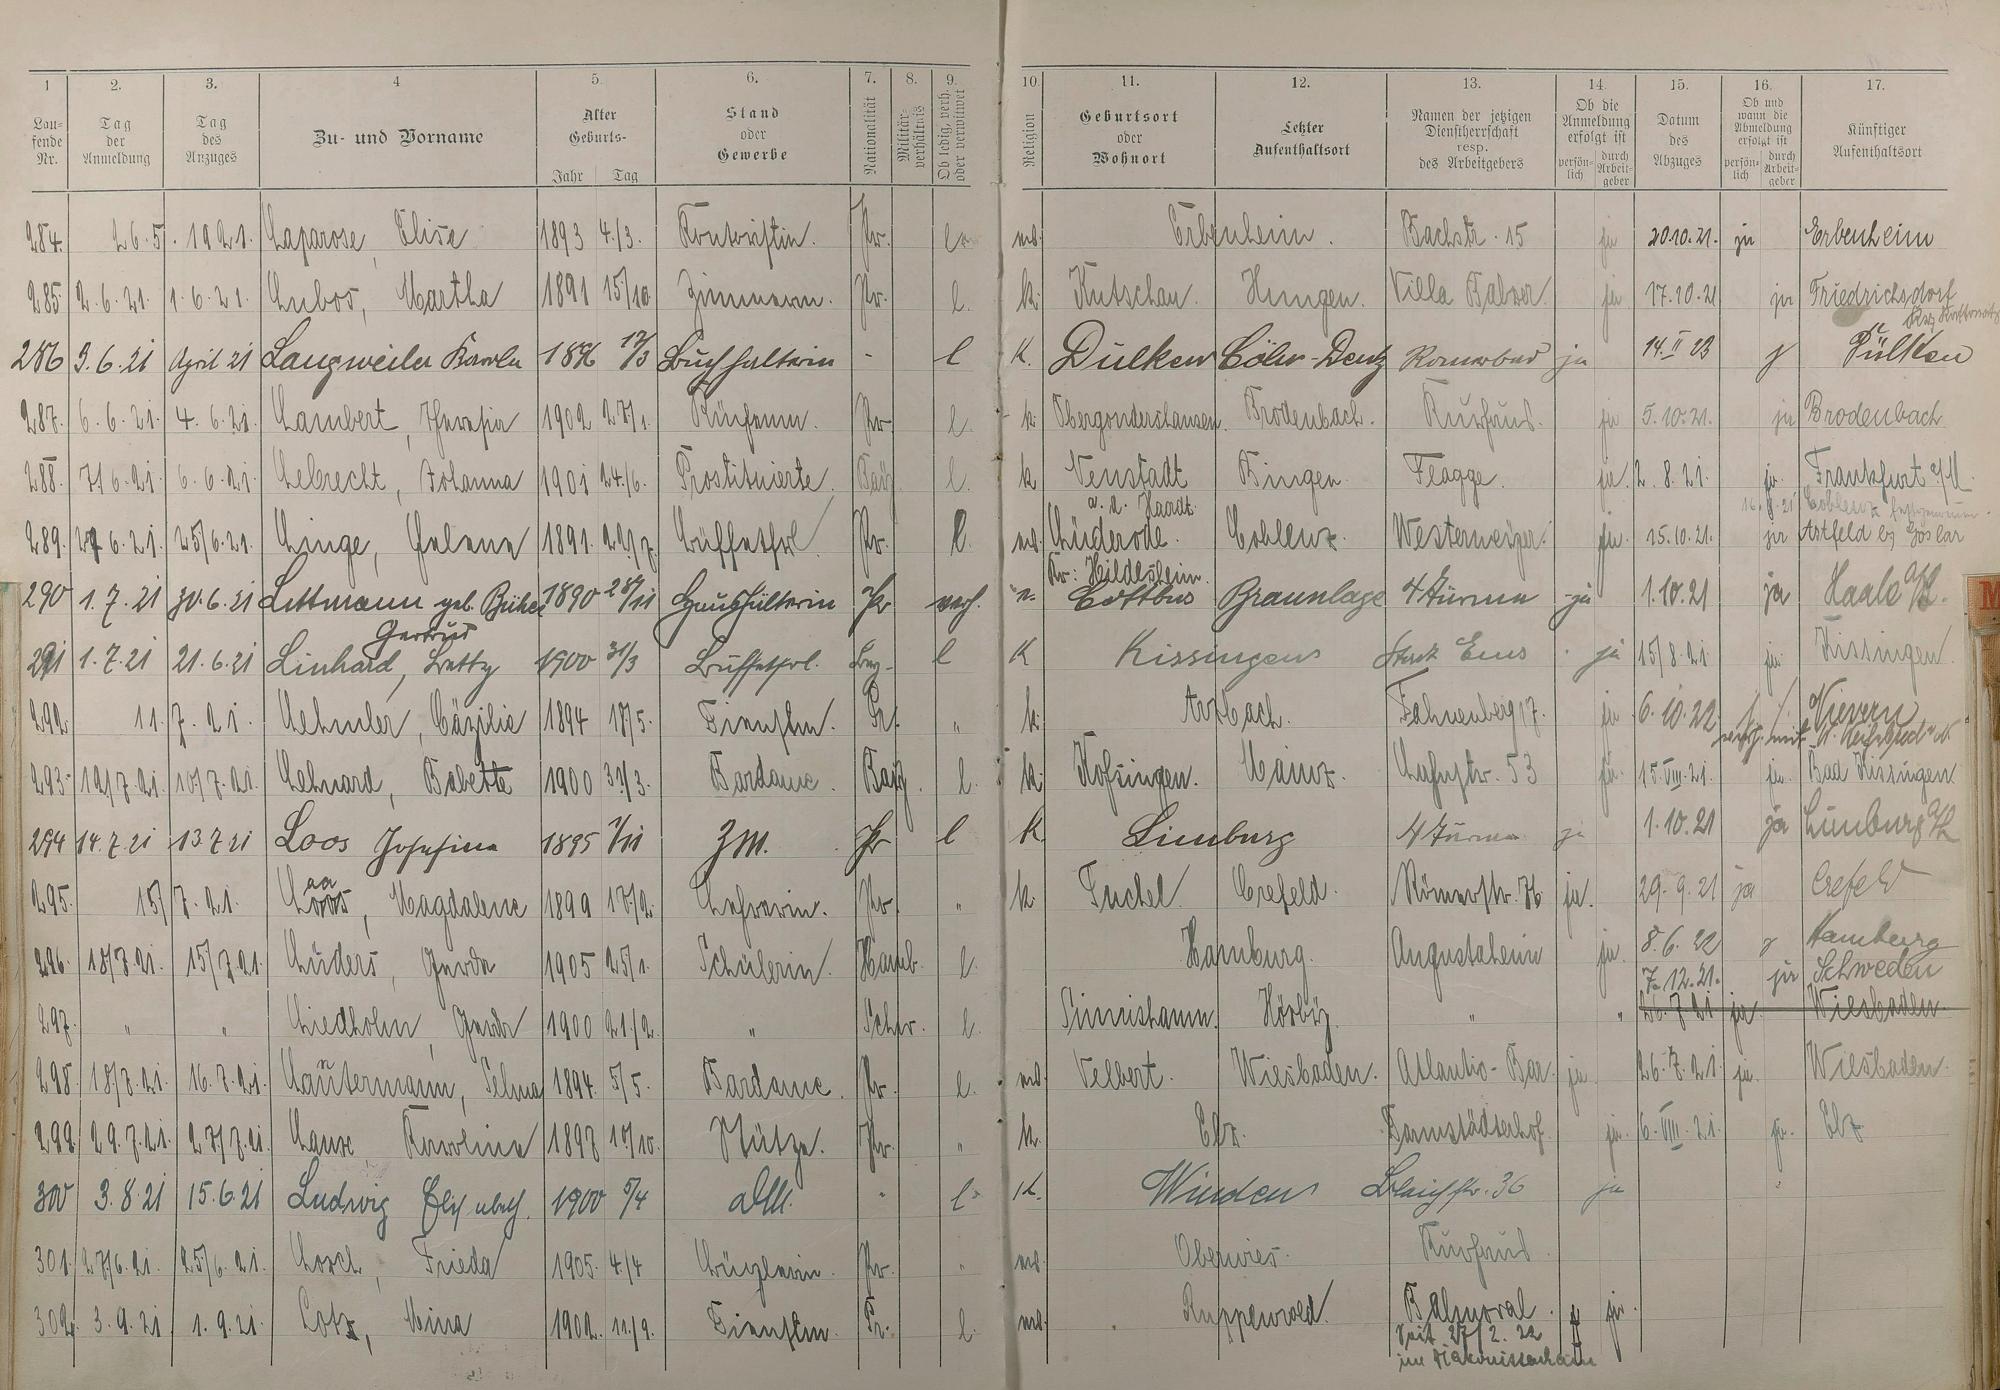 1 2. 3. 4 5. 6. 7. 8. 9. 10. 11. 12. 13. 14. 15. 16. 17.
Lau-fende Nr. Tag der Anmeldung Tag des Anzuges Zu- und Vorname Alter Geburts- Jahr Tag Stand oder Gewerbe Nationalität Militär-verhältnis Ob ledig, verh. oder verwitwet Religion Geburtsort oder Wohnort Letzter Aufenthaltsort Namen der jetzigen Dienstherrschaft resp. des Arbeitgebers Ob die Anmeldung erfolgt ist persön-lich durch Arbeit-geber Datum des Abzuges Ob und wann die Abmeldung erfolgt ist persön-lich durch Arbeit-geber Künftiger Aufenthaltsort
284. 26.5. 1921. Laparose, Elise 1893 4./3. Kontoristin. Pr. l. Erbenheim. Bachstr. 15 ja 20.10.21. ja Erbenheim
285. 2.6.21. 1.6.21. Lubos, Martha 1891 15/10. Zimmerm. Pr. l. k. Kutschau. Hungen. Villa Balzer. ja 17.10.21 ja Friedrichsdorf
286 3.6.21 April 21 Langweiler 1876 12/3 Buchhalterin - l K. Dülken Cöln-Deutz Römerbad ja 14.II 23 Dülken
287. 6.6.21. 4.6.21. Lambert, Theresia 1902 27/1. Pr. l. k. Obergondershausen. Brodenbach. Kurhaus. ja 5.10.21. ja Brodenbach
288. 7/6.21. 6.6.21. Lebrecht, Johanna 1901 24./6. Prostituierte. Bay. l. k. Neustadt a. d. Haardt. Bingen. Flagge. ja. 2.8.21. ja. Frankfurt a/M.
289. 27 6.21. 25/6.21. Linge, Helene 1891. 22/7. Büffetfrl. Pr. l. Lüderode. Coblenz. Westerweiger. ja. 15.10.21. ja Astfeld b/ Goslar
Kr: Hildesheim.
290 1.7.21 30.6.21 Littmann geb. 1890 28/11 Haushälterin Pr verh. Cottbus Braunlage 4 Türme ja 1.10.21 ja Haale a/S.
Gertrud
291 1.7.21 21.6.21 Linhard, Betty 1900 31/3 Büffetfrl. Bay- l K Kissingen Stadt Ems ja 15/8.21. ja Kissingen
292. 11.7.21. Lehmler, Cäzilie 1894 18/5. Dienstm. Pr. " k. Arzbach. Fahnenberg 17. ja 6.10.22 Nievern
293. 12/7.21. 10/7.21. Lehnard, Babette 1900 31/3. Bardame. Bay. l. k. Mainz. Lahnstr. 53 ja. 15.VIII.21. ja. Bad Kissingen.
294 14.7.21 13.7.21 Loos Josefine 1895 1/11 ZM. Pr l K Limburg 4 Türme ja 1.10.21 ja Limburg a/L
295. 15/7.21. Laas, Magdalene 1899 17/2. Lehrerin. Pr. " k. Tuchel. Crefeld. Römerstr. 76 ja. 29.9.21 ja Crefeld
296. 18/7.21. 15/7.21. Lüders, Gerda 1905 25/1. Schülerin. Hamb. l. Hamburg. Augustaheim ja. 8.6.22 Hamburg
7.12.21. ja Schweden
297. " " Liedholm, Gerda 1900 21/2. " Schw. l. Simrishamn. Hörby. " " 26.7.21 ja. Wiesbaden.
298. 18/7.21. 16.7.21. Lautermann, Selma 1894. 5/5. Bardame. Pr. l. Velbert. Wiesbaden. Atlantic-Bar. ja 26.7.21. ja. Wiesbaden.
299. 29.7.21. 27/7.21. Karoline 1897 10/10. Stütze. Pr. " k. Elz. Darmstädterhof. ja. 6.VIII.21. ja. Elz
300 3.8.21 15.6.21 Ludwig Elisabeth. 1900 5/4 " l. K. Winden Bleichstr. 36 ja
301. 27/6.21. 25/6.21. Losch, Frieda 1905. 4./4 Büglerin. Pr. " Oberwies. Kurhaus.
302. 3.9.21. 1.9.21. Lotz, Mina 1902. 11./9. Dienstm. Pr. l. Ruppenrod. Balmoral. ja.
seit 27/2.22
im Diakonissenheim